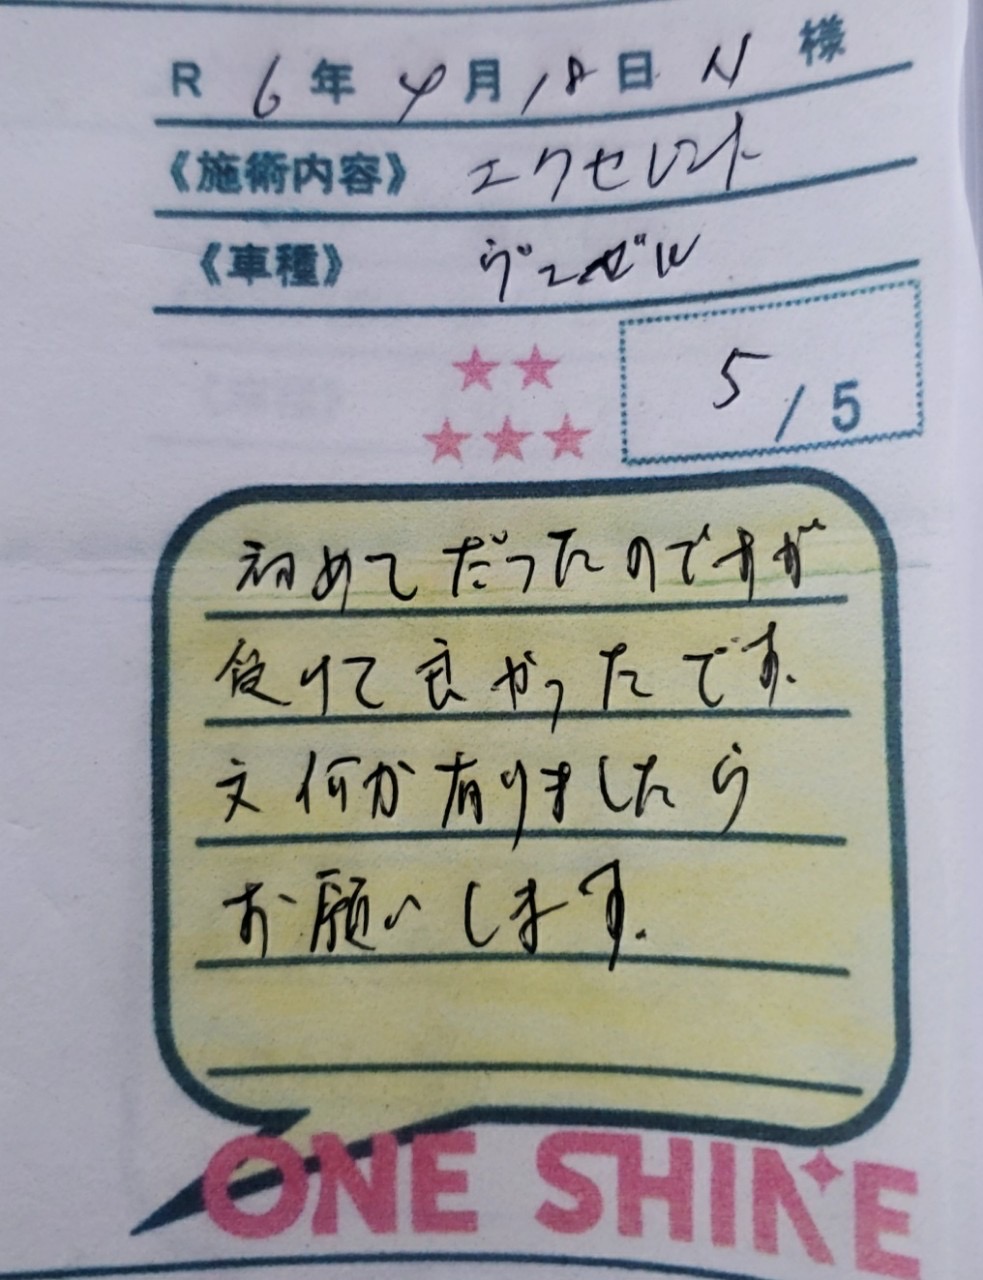 R 6年 4月 18日 N 様
《施術内容》 エクセレント
《車種》 ヴェゼル
★★
★★★
5/5
初めてだったのですが
受けて良かったです.
文何か有りましたら
お願いします.
ONE SHINE